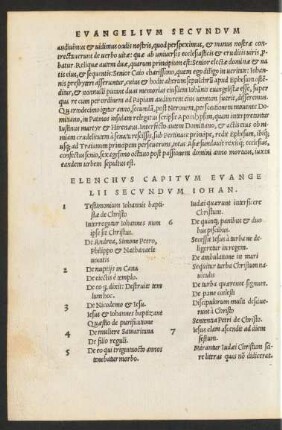 EVANGELIVM SECVNDVM
audiuimus & uidimus oculis nostris, quod perspeximus, & manus nostræ con
trectauerunt de uerbo uitæ: quæ ab uniuersis ecclesiasticis & eruditis uiris, pro
batur. Reliquæ autem duæ, quarum principium est: Senior electæ dominæ & na
tis eius, & sequentis: Senior Caio charissimo, quem ego diligo in ueritate: Iohan
nis presbyteri asseruntur, cuius & hodie alterum sepulchrum apud Ephesum osten
ditur, & nonnulli putant duas memorias eiusdem Iohannis euangelistæ esse, super
qua re cum per ordinem ad Papiam auditorem eius uentum fuerit, disseremus.
Quartodecimo igitur anno, secundam post Neronem, persecutionem mouente Domi
tiano, in Patmos insulam relegatus scripsit Apocalypsim, quam interpretantur
Iustinus martyr & Hireneus. Interfecto autem Domitiano, & actis eius ob ni
miam crudelitatem à senatu rescissis, sub Pertinace principe, redit Ephesum, ibiq;
usq; ad Traianum principem perseuerans, totas Asiæ fundauit rexitq; ecclesias, &
confectus senio, sexagesimo octauo post passionem domini anno mortuus, iuxta ean
dem urbem sepultus est.
ELENCHVS CAPITVM EVANGE
LII SECVNDVM IOHAN.
1 Testimonium Iohannis bapti
stæ de Christo
Interrogatur Iohannes num
ipse sit Christus.
De Andrea, Simone Petro,
Philippo & Nathanaele
uocatis
2 De nuptijs in Cana
De eiectis è templo.
De eo q̃ dixit: Destruite tem
lum hoc.
3 De Nicodemo & Iesu.
Iesus & Iohannes baptizant
Quæstio de purificatione
4 De muliere Samaritana
De filio reguli.
5 De eo qui triginta octo annos
tenebatur morbo.
Iudæi quærunt interficere
Christum.
6 De quinq; panibus & duo
bus piscibus.
Secessit Iesus à turba ne de
ligeretur in regem.
De ambulatione in mari
Sequitur turba Christum na
uiculis
De turba quærente signum.
De pane cœlesti
Discipulorum multi descisce
runt à Christo
Sententia Petri de Christo.
7 Iesus clam ascendit ad diem
festum.
Mirantur Iudæi Christum sci
re literas quas nō didicerat.